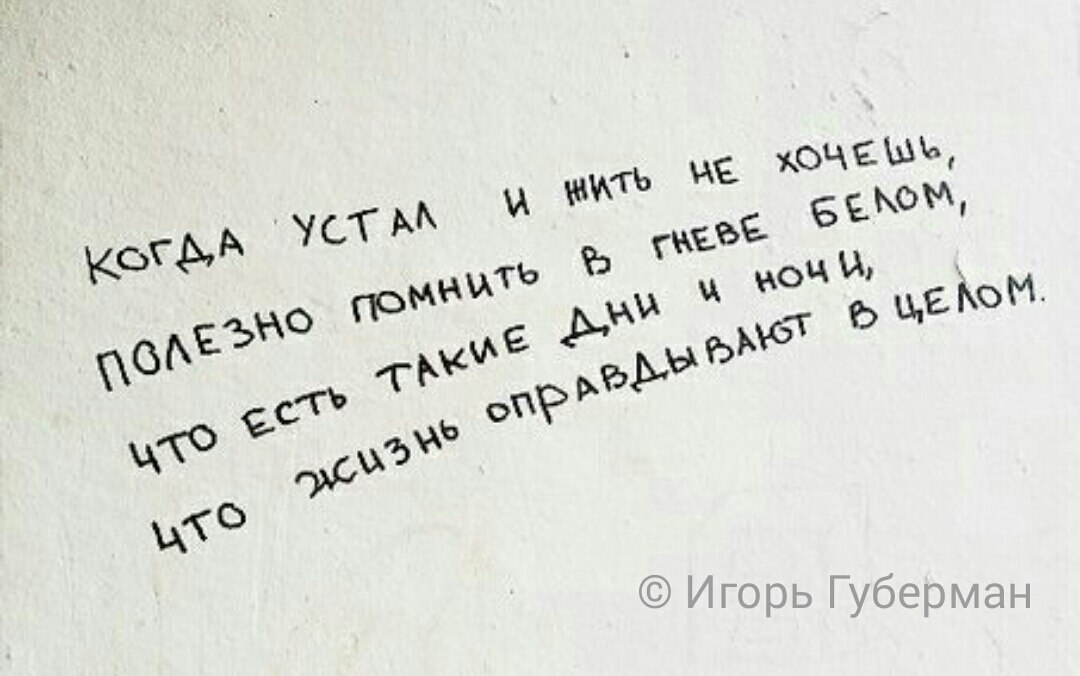 КОГДА УСТАЛ И ЖИТЬ НЕ ХОЧЕШЬ,
ПОЛЕЗНО ПОМНИТЬ В ГНЕВЕ БЕЛОМ,
ЧТО ЕСТЬ ТАКИЕ ДНИ И НОЧИ,
ЧТО ЖИЗНЬ ОПРАВДЫВАЮТ В ЦЕЛОМ.
© Игорь Губерман